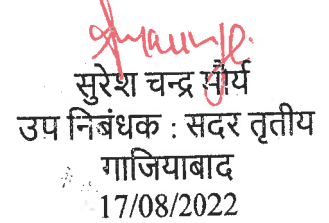 सुरेश चन्द्र मौर्य
उप निबंधक : सदर तृतीय
गाजियाबाद
17/08/2022